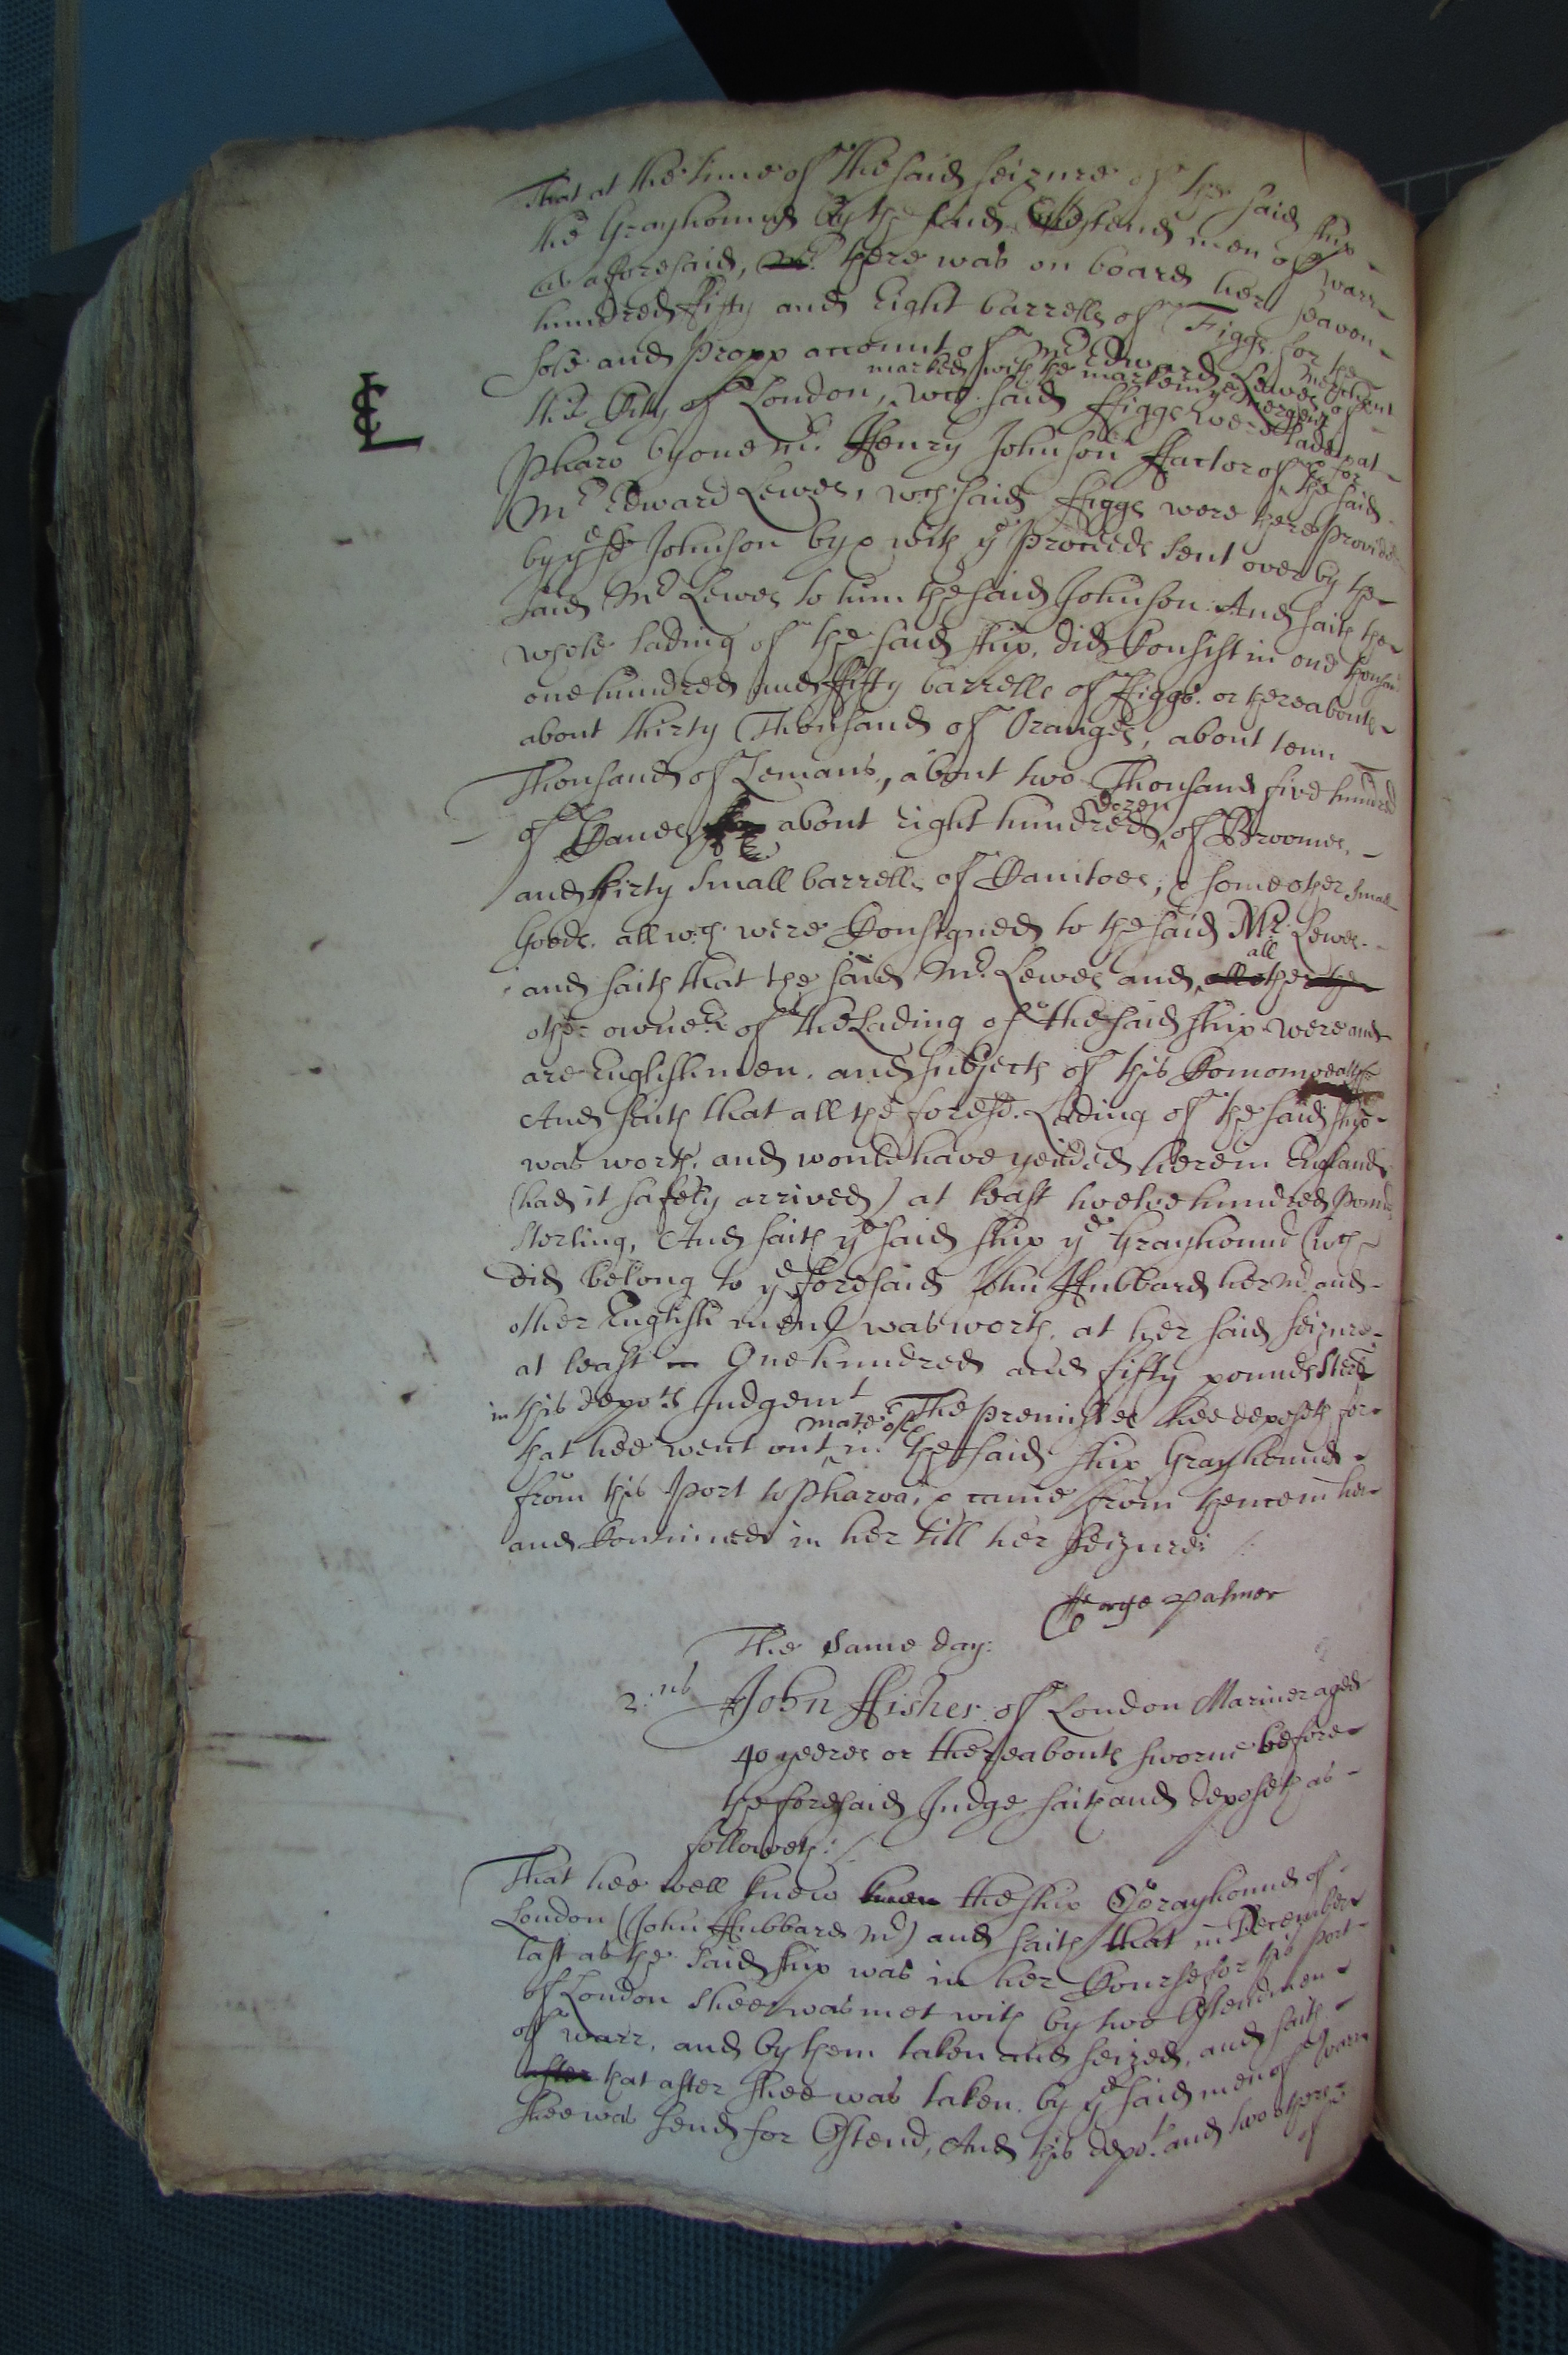 That at the time of the said seizure of the said shipp
the Grayhound by the said Ostend men of warr
as aforesaid, there was on board her seaven
hundred fifty and Eight barrells of Figgs for the
sole and propp account of Mr Edward Lewes of
merchant
marked with the marke in ye mergent
this Citty of London, wch said ffiggs were laden at
Pharo by one Mr Henry Johnson ffactor of & for the said
Mr Edward Lewes, wch said ffiggs were there provided
by ye sd Johnson by & with ye proceeds sent over by the
said Mr Lewes to him the said Johnson. And saith the
whole lading of the said ship, did Consist in one thousand
one hundred and fifty barrells of ffiggs or thereabouts
about thirty Thousand of Oranges, about tenn
Thousand of Lemans, about two Thousand five hundred
of Canes about eight hundred dozen of Broomes,
and thirty small barrells of Camitoes, & some other small
Goods. all wch were Consigned to the said Mr Lewes.
and saith that the said Mr Lewes and all all other the
other owners of the Lading of the said ship were and
are Englishmen. and subjects of this Comonwealth
And saith that all the foresd. Lading of the said ship
was worth, and would have yeilded here in England
(had it safely arrived) at least twelve hundred pounds
sterling, And saith ye said ship ye Grayhound (wch
did belong to ye foresaid John Hubbard her Mr and
other English men) was worth, at her said seizure
at least in One hundred and fifty pounds sterl
in this depots Judgemt The premisses hee deposeth for
that hee went out mate of in the said ship Grayhound
from this Port to Pharoa, & came from thence in her
and Continued in her till her Seizure:
George palmer
The same day:
2.us John ffisher of London Mariner aged
40 yeeres or thereabouts sworne before
the foresaid Judge saith and deposeth as
followeth:
That hee well knew knew the ship Grayhound of
London (John Hubbard Mr) and saith that in December
last as the said ship was in her Course for this port
of London shee was met with by two Ostend men
of warr, and by them taken and seized, and saith
after that after shee was taken by ye said men of warr
shee was send for Ostend, And this depot and two others
of